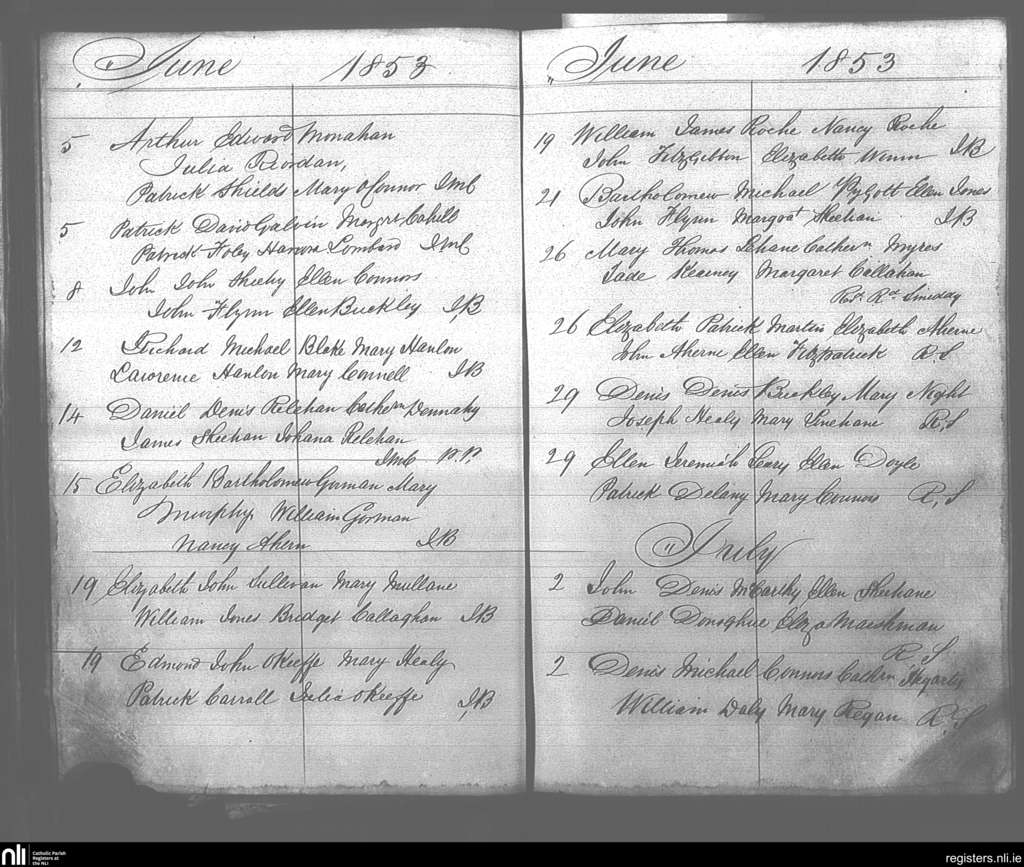 June 1853
5 Arthur Edword Monahan
Julia Riordan,
Patrick Shields Mary O Connor JMC
5 Patrick David Galvin Margrt Cahill
Patrick Foley Hanora Lombard JMC
8 John John Sheehy Ellen Connors
John Flynn Ellen Buckley J,B
12 Richard Michael Blake Mary Hanlon
Lawrence Hanlon Mary Connell JB
14 Daniel Denis Relehan Cathern Dennahy
James Sheehan Johana Relehan
JMC P.P.
15 Elizabeth Bartholomew Gorman Mary
Murphy William Gorman
Nancy Ahern JB
19 Elizabeth John Sullivan Mary Mullane
William Jones Bridget Callaghan JB
19 Edmond John OKeeffe Mary Healy
Patrick Carroll Julia OKeeffe J,B
June 1853
19 William James Roche Nancy Roche
John FitzGibbon Elizabeth JB
21 Bartholomew Michael Pygott Ellen Jones
John Flynn Margaat Sheehan JB
26 Mary Thomas Lehane Cathern Myras
Jade Kearney Margaret Callahan
Rd.
26 Elizabeth Patrick Martin Elizabeth Aherne
John Aherne Ellen Fitzpatrick R.S
29 Denis Denis Buckley Mary Night
Joseph Healy Mary Linehane R,S
29 Ellen Jeremiah Leary Ellen Doyle
Patrick Delany Mary Connors R,S
July
2 John Denis McCarthy Ellen Sheehane
Daniel Donoghue Eliza Marshman
R,S.
2 Denis Michael Connors Cathrn Hegarty
William Daly Mary Regan R,S
nli Catholic Parish
Registers at
the NLI
registers.nli.ie